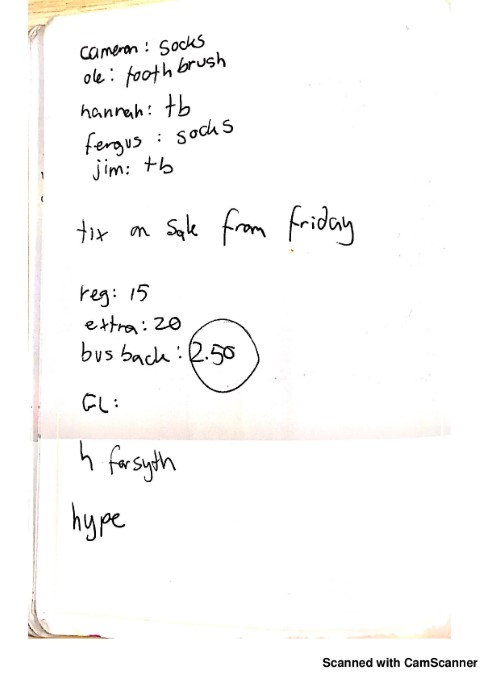 cameron: socks
ole: toothbrush
hannah: tb
fergus: socks
jim: tb
tix on sale from friday
reg: 15
extra: 20
bus back: 2.50
GL:
h forsyth
hype
Scanned with CamScanner